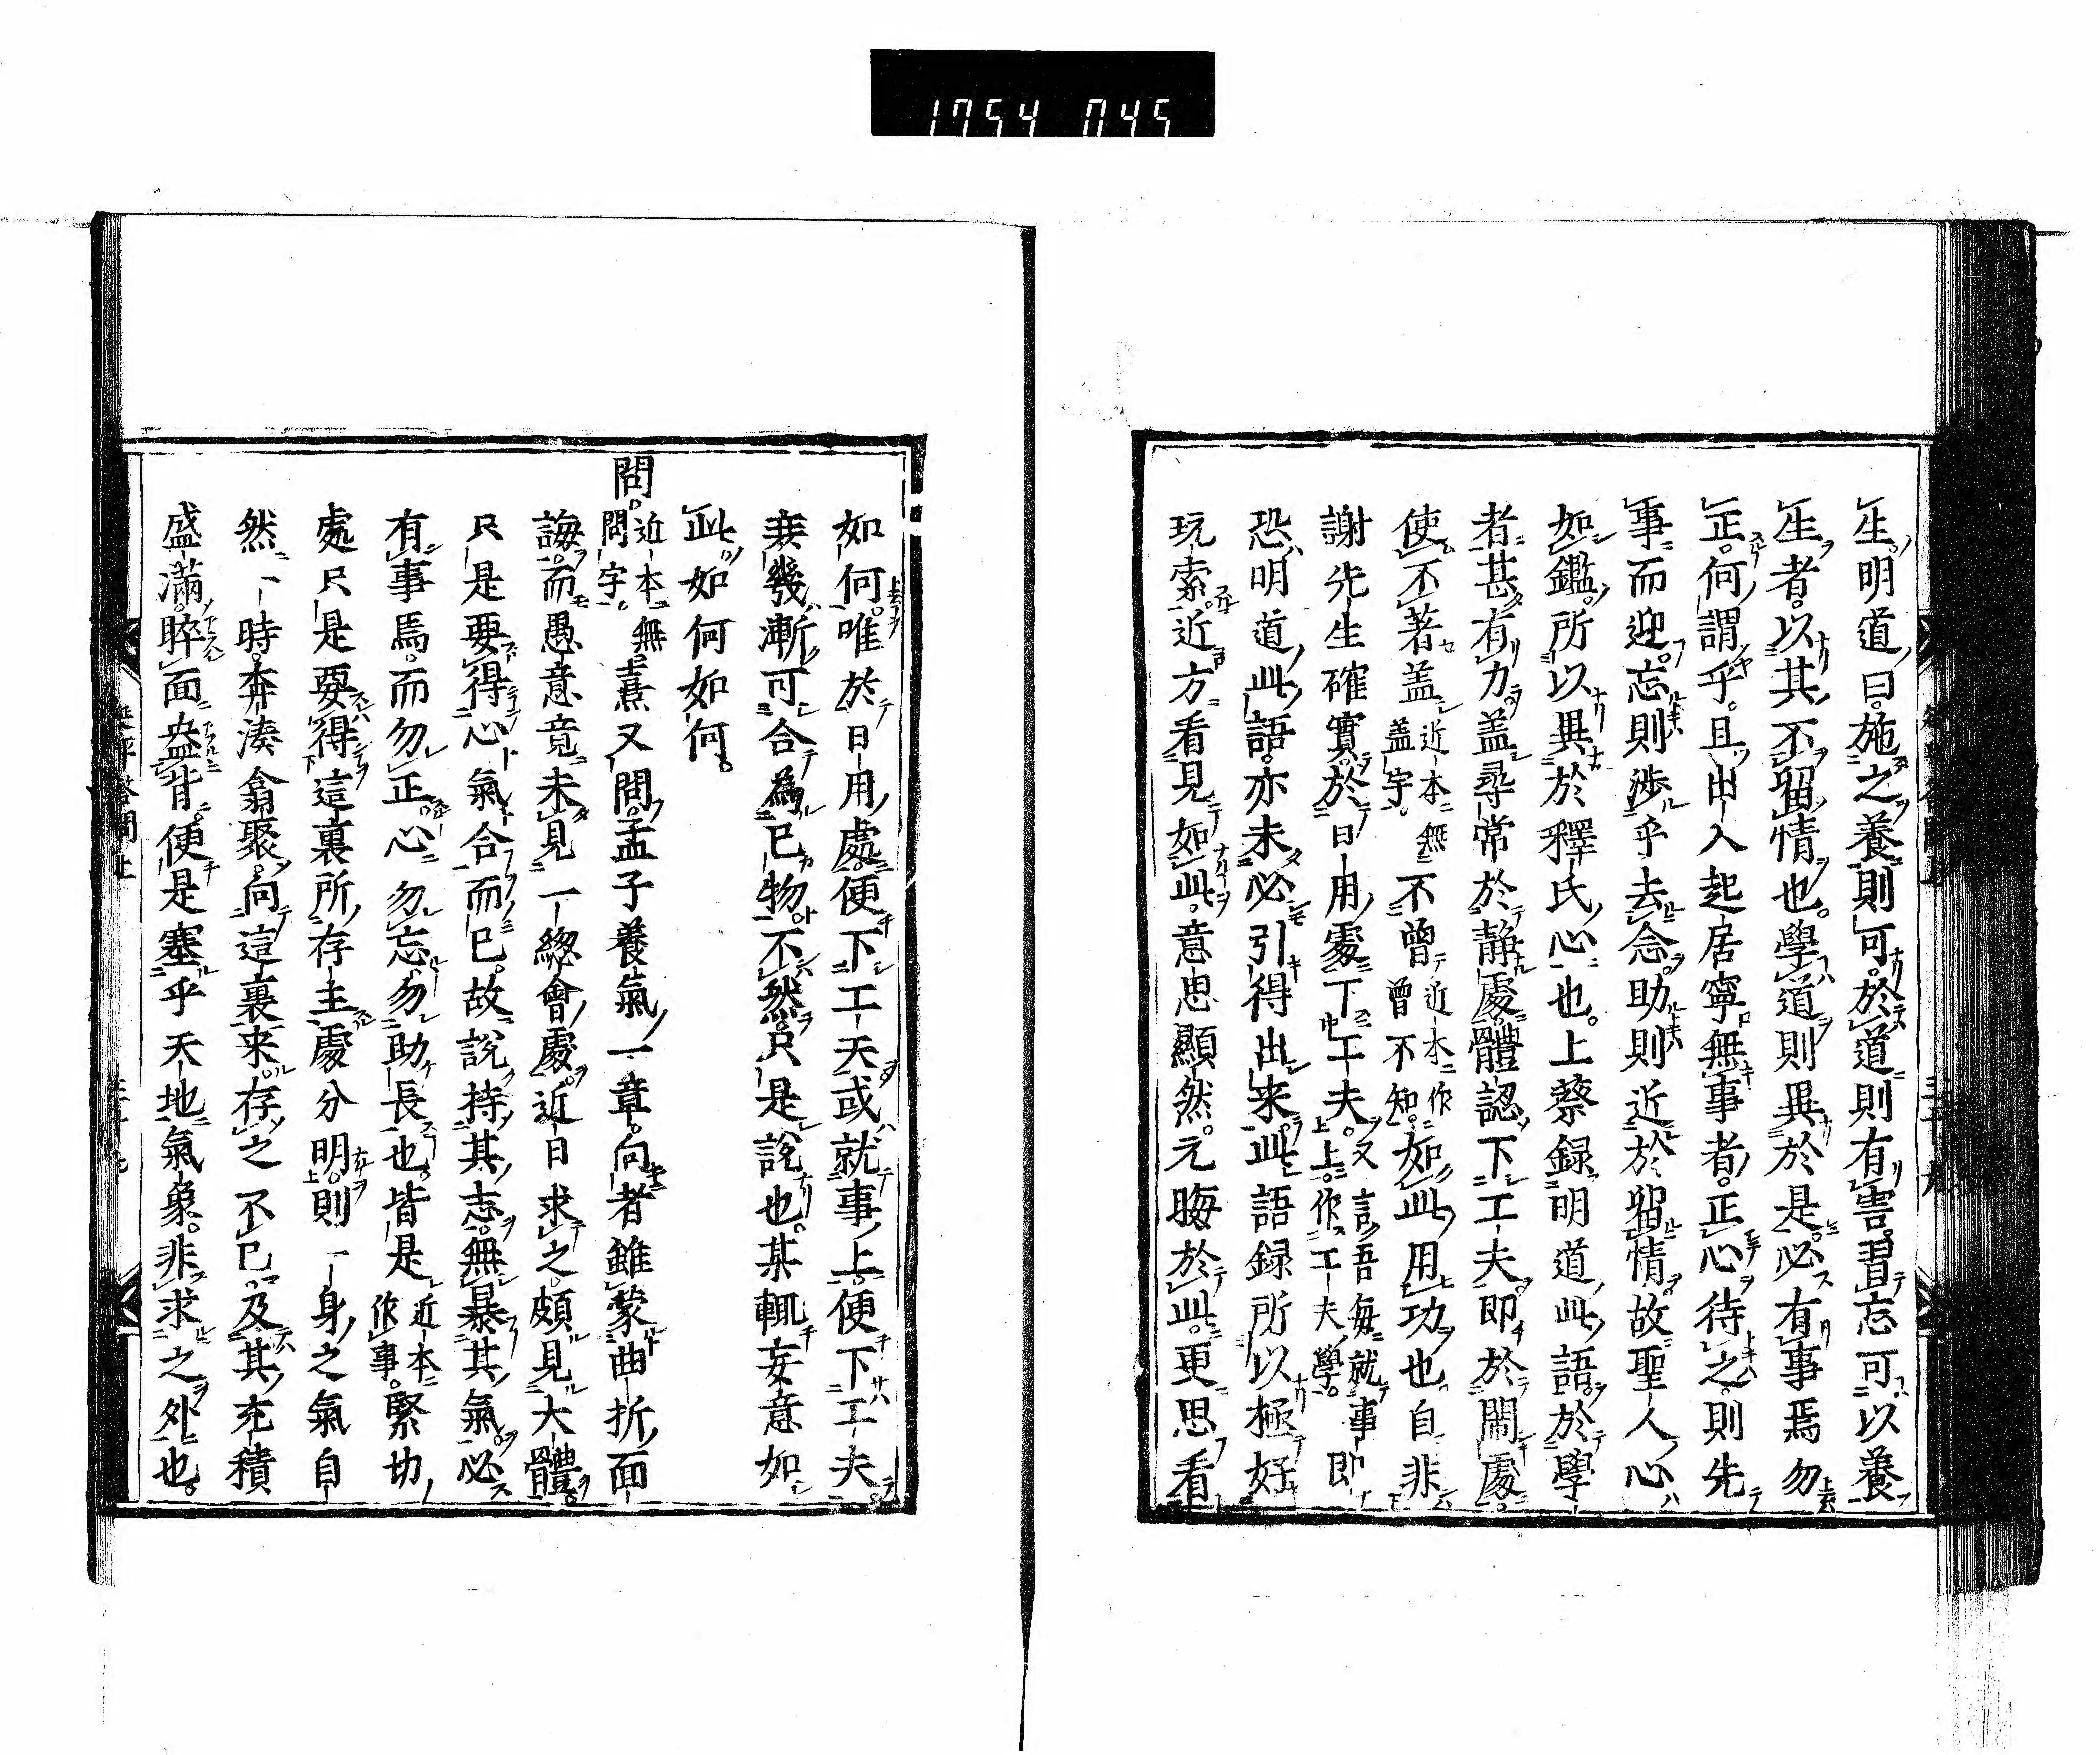 1754 045
生明道曰施之養則可於道則有害習忘可以養
生者以其不留情也學道則異於是必有事焉勿
正何謂乎且出入起居寧無事者正心待之則先
事而迎忘則渉乎去念助則近於留情故聖人心
如鑑所以異於釋氏心也上蔡録明道此語於學
者甚有力蓋尋常於靜處體認下工夫即於閙處
使不著蓋近本無蓋字不曽近本作曽不知如此用功也自非
謝先生確實於日用處下工夫又言吾毎就事上作工夫學即
恐明道此語亦未必引得出来此語録所以極好
玩索近方看見如此意思顯然元晦於此更思看
如何唯於日用處便下工夫或就事上便下工夫
庶幾漸可合為已物不然只是説也某輒妄意如
此如何如何
問近本無問字熹又問孟子養氣一章向者雖蒙曲折面
誨而愚意竟未見一總會處近日求之頗見大體
只是要得心氣合而已故説持其志無暴其氣必
有事焉而勿正心勿忘勿助長也皆是近本作事緊切
處只是要得這裏所存主處分明則一身之氣自
然一時奔湊翕聚向這裏来存之不已及其充積
盛滿睟面盎背便是塞乎天地氣象非求之外也